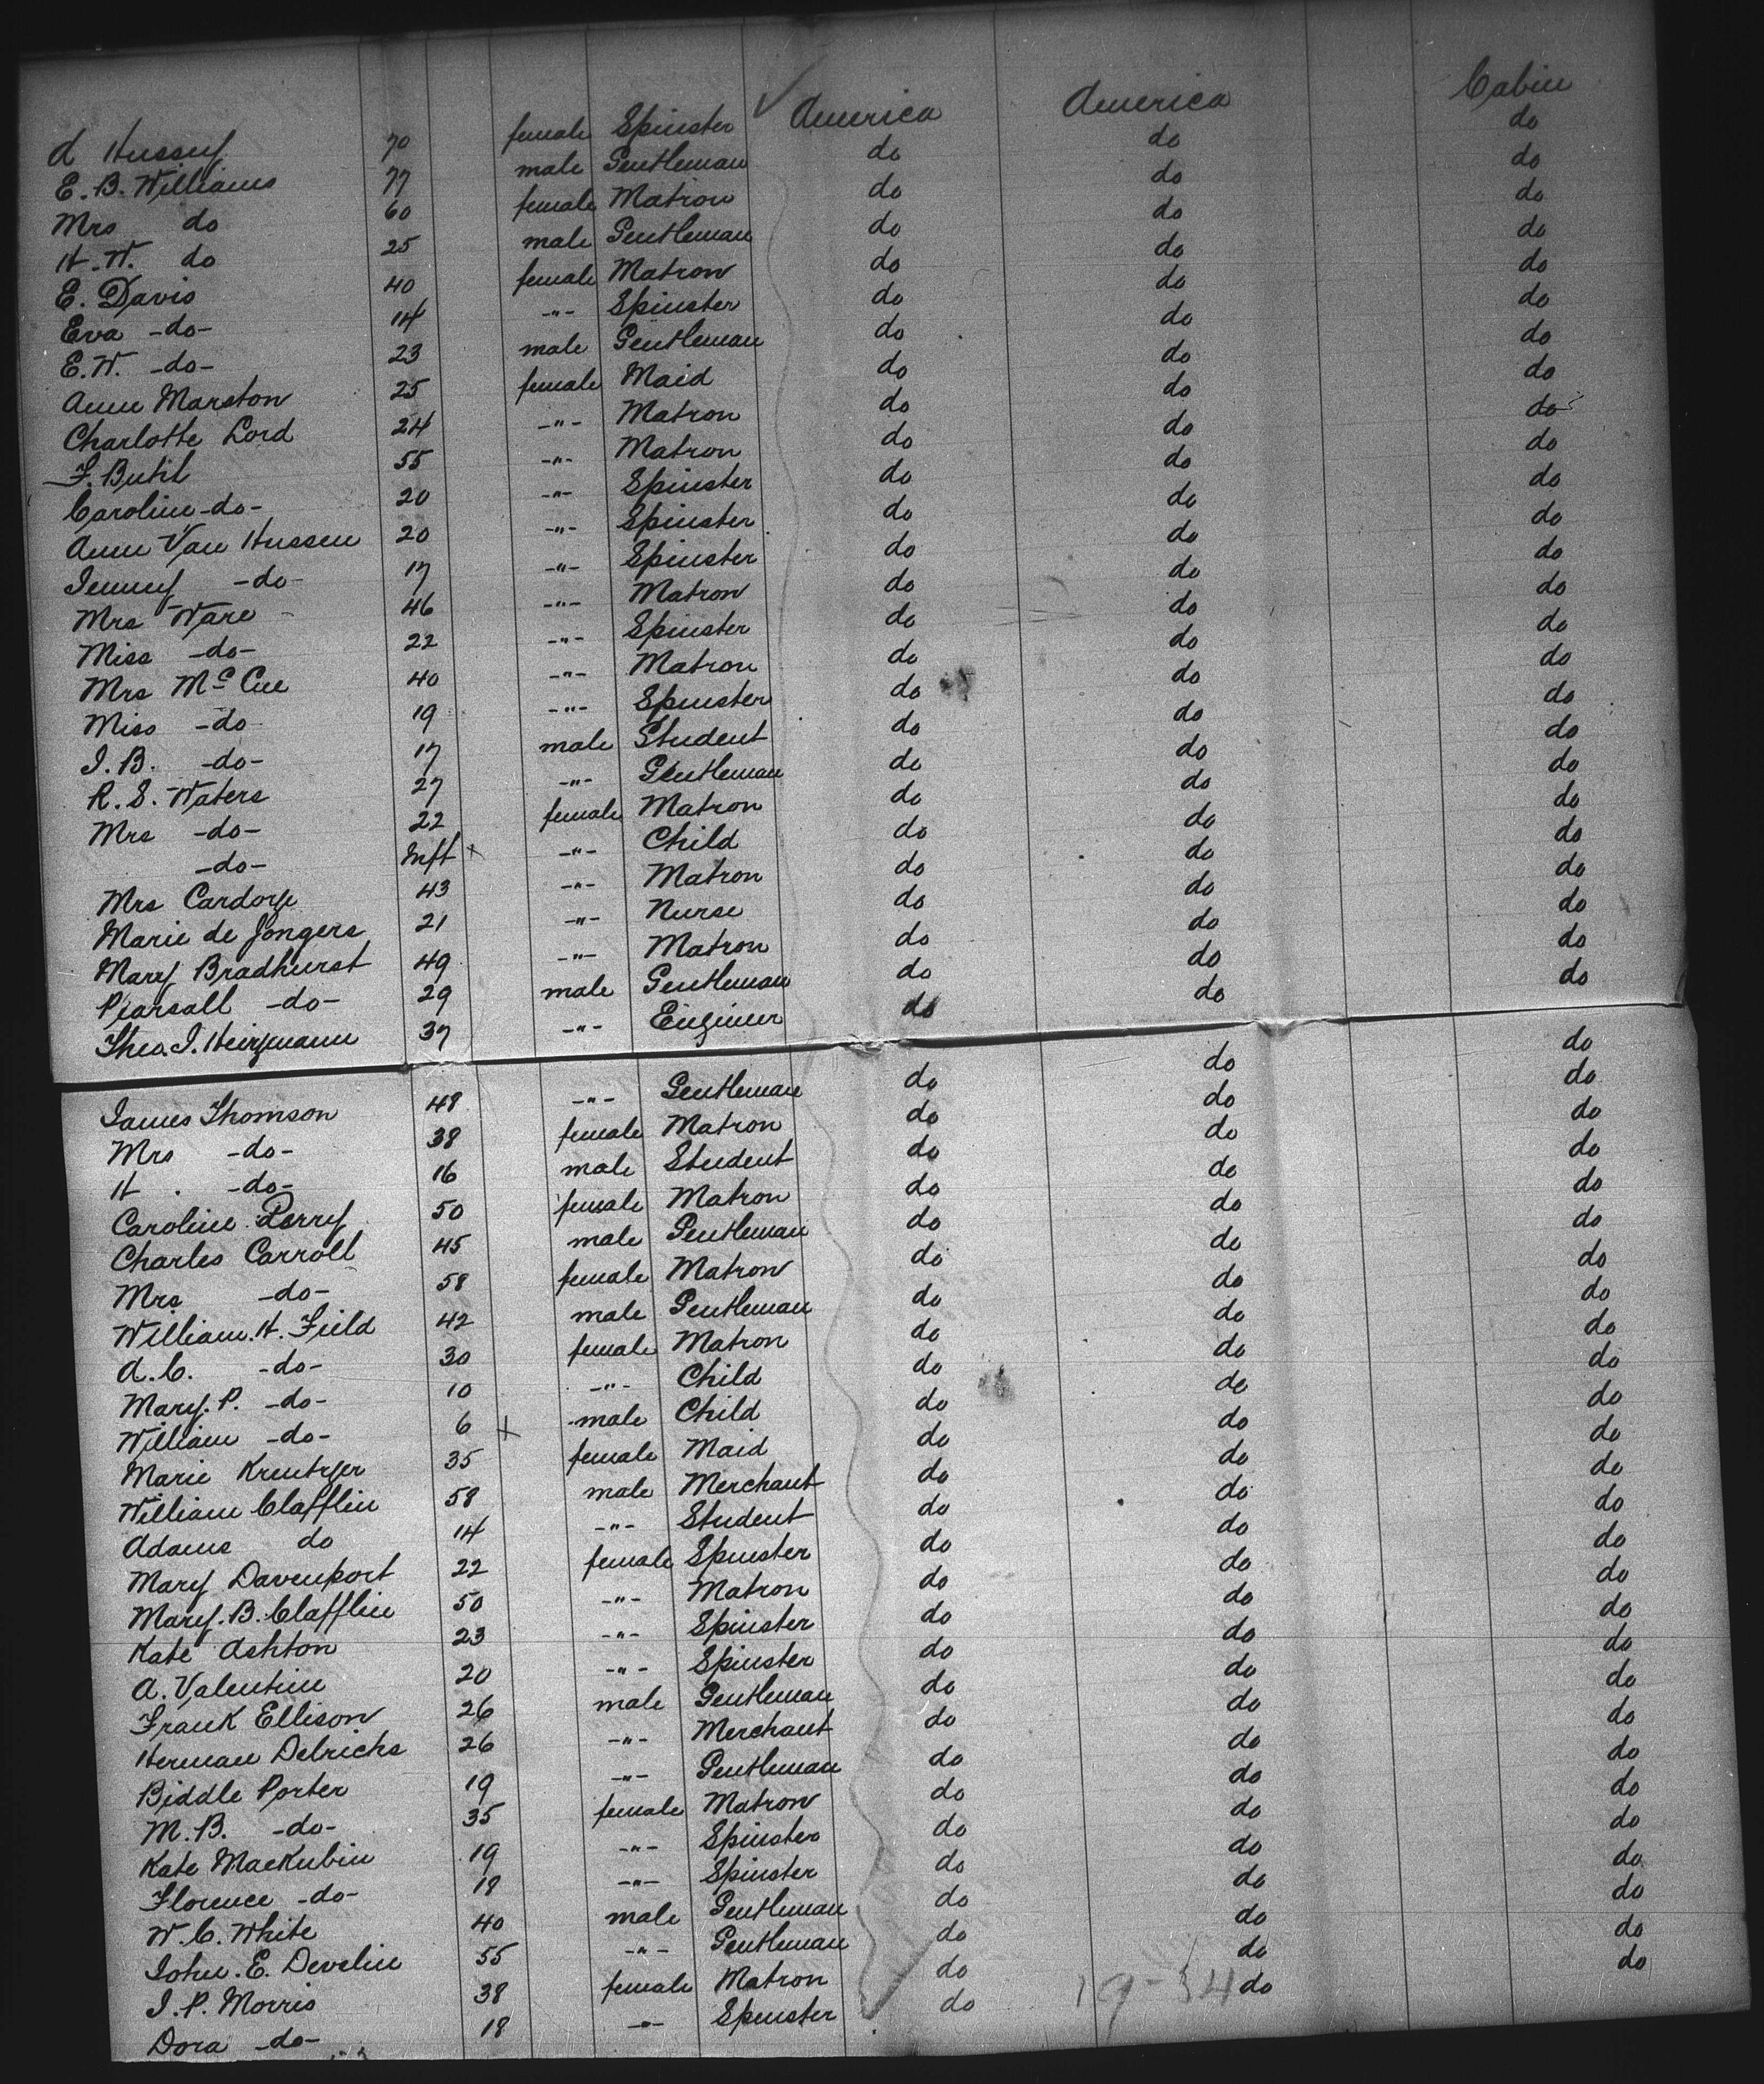 A Hussey 70 female Spinster America America Cabin
E. B. Williams 77 male Gentleman do do do
Mrs do 60 female Matron do do do
H. W. do 25 male Gentleman do do do
E. Davis 40 female Matron do do do
Eva -do- 14 -"- Spinster do do do
E. W. -do- 23 male Gentleman do do do
Ann Marston 25 female Maid do do do
Charlotte Lord 24 -"- Matron do do do
F. Butil 55 -"- Matron do do do
Caroline -do- 20 -"- Spinster do do do
Ann Van Hussen 20 -"- Spinster do do do
Jenny -do- 17 -"- Spinster do do do
Mrs Ware 46 -"- Matron do do do
Miss -do- 22 -"- Spinster do do do
Mrs McCue 40 -"- Matron do do do
Miss -do- 19 -"- Spinster do do do
J. B. -do- 17 male Student do do do
R. S. Waters 27 -"- Gentleman do do do
Mrs -do- 22 female Matron do do do
-do- Inft x -"- Child do do do
Mrs Cardoze 43 -"- Matron do do do
Marie de Jongers 21 -"- Nurse do do do
Mary Bradhurst 49 -"- Matron do do do
Pearsall -do- 29 male Gentleman do do do
Theo. J. 37 -"- Engineer do do do
James Thomson 48 -"- Gentleman do do do
Mrs -do- 38 female Matron do do do
H . -do- 16 male Student do do do
Caroline Perry 50 female Matron do do do
Charles Carroll 45 male Gentleman do do do
Mrs -do- 58 female Matron do do do
William. H. Field 42 male Gentleman do do do
A. C. -do- 30 female Matron do do do
Mary. P. -do- 10 -"- Child do do do
William -do- 6 x male Child do do do
Marie Kreutzer 35 female Maid do do do
William Clafflin 58 male Merchant do do do
Adams do 14 -"- Student do do do
Mary Davenport 22 female Spinster do do do
Mary. B. Clafflin 50 -"- Matron do do do
Kate Ashton 23 -"- Spinster do do do
A. Valentine 20 -"- Spinster do do do
Frank Ellison 26 male Gentleman do do do
Herman Delrichs 26 -"- Merchant do do do
Biddle Porter 19 -"- Gentleman do do do
M. B. -do- 35 female Matron do do do
Kate MacKubin 19 -"- Spinster do do do
Florence -do- 18 -"- Spinster do do do
W. C. White 40 male Gentleman do do do
John. E. Develin 55 -"- Gentleman do do do
J. P. Morris 38 female Matron do do do
Dora -do- 18 -"- Spinster do 19-34 do